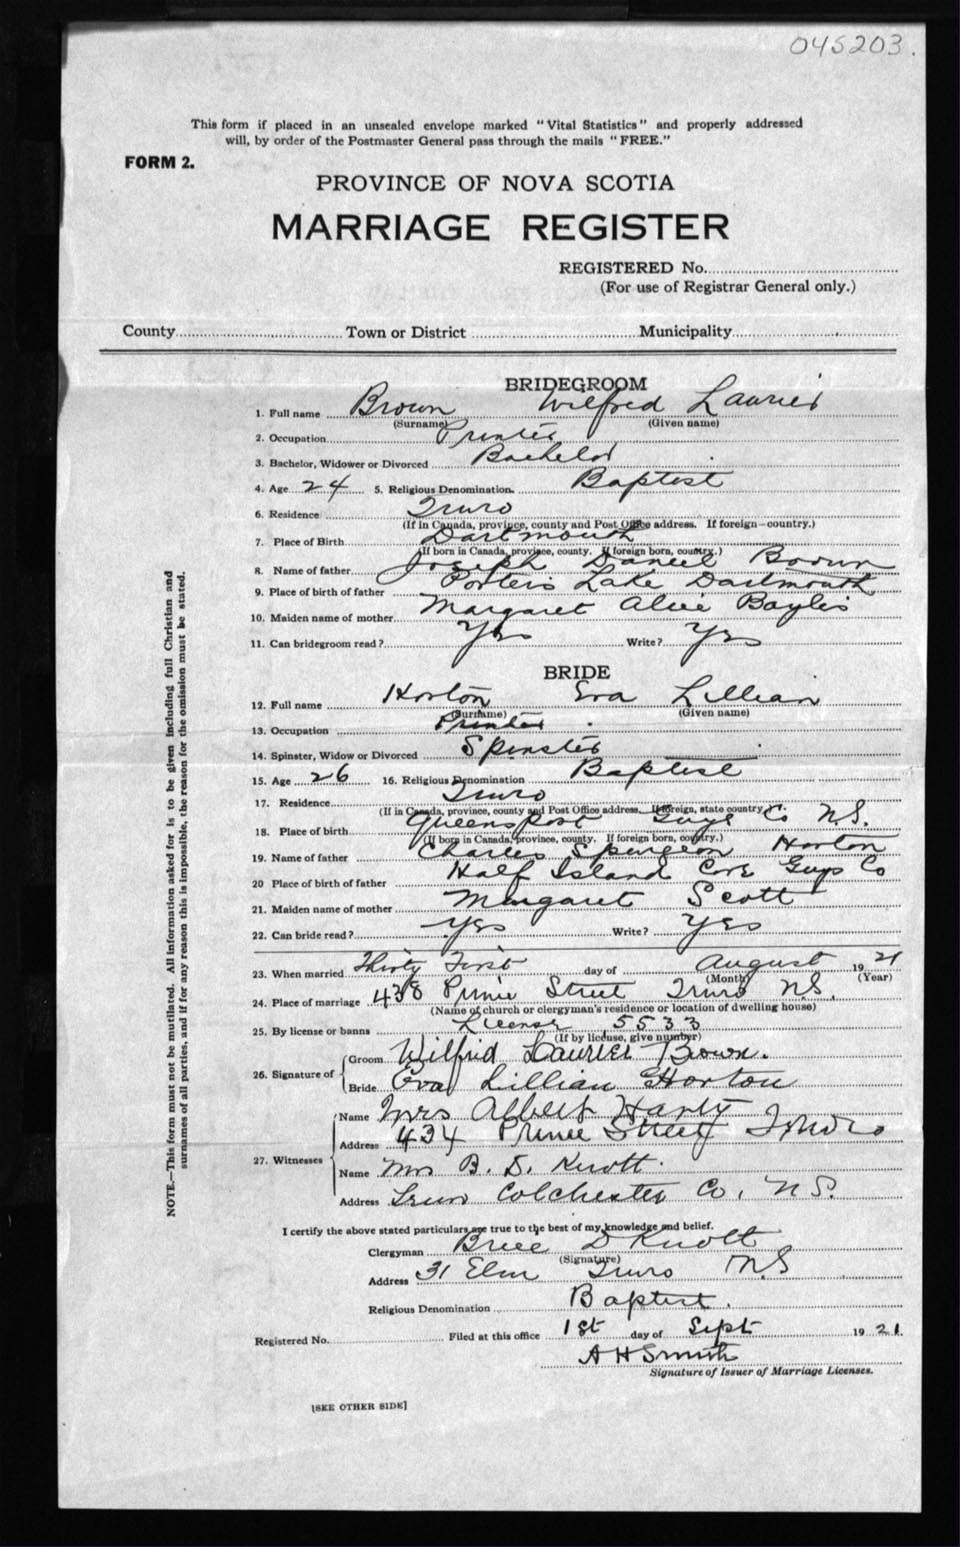 045203.
This form if placed in an unsealed envelope marked "Vital Statistics" and properly addressed
will, by order of the Postmaster General pass through the mails "FREE."
FORM 2.
PROVINCE OF NOVA SCOTIA
MARRIAGE REGISTER
REGISTERED No.
(For use of Registrar General only.)
County Town or District Municipality
BRIDEGROOM
1. Full name Brown Wilfred Laurier
(Surname) (Given name)
2. Occupation Printer
3. Bachelor, Widower or Divorced Bachelor
4. Age 24 5. Religious Denomination. Baptist
6. Residence Truro
(If in Canada, province, county and Post Office address. If foreign—country.)
7. Place of Birth Dartmouth
(If born in Canada, province, county. If foreign born, country.)
8. Name of father Joseph Daniel Brown
9. Place of birth of father Porters Lake Dartmouth
10. Maiden name of mother Margaret Alice Baylis
11. Can bridegroom read? Yes Write? Yes
BRIDE
12. Full name Horton Eva Lillian
(Surname) (Given name)
13. Occupation Printer
14. Spinster, Widow or Divorced Spinster
15. Age 26 16. Religious Denomination Baptist
17. Residence Truro
(If in Canada, province, county and Post Office address. If foreign, state country.)
18. Place of birth Queensport Guys Co N.S.
(If born in Canada, province, county. If foreign born, country.)
19. Name of father Charles Spurgeon Horton
20 Place of birth of father Half Island Cove Guys Co
21. Maiden name of mother Margaret Scott
22. Can bride read? Yes Write? Yes
23. When married Thirty First day of August 1921
(Month) (Year)
24. Place of marriage 438 Prince Street Truro N.S.
(Name of church or clergyman's residence or location of dwelling house)
25. By license or banns License 5533
(If by license, give number)
26. Signature of Groom Wilfrid Laurier Brown.
Bride Eva Lillian Horton
27. Witnesses Name Mrs Albert
Address 434 Prince Street Truro
Name Mrs B. D. Knott.
Address Truro Colchester Co, N.S.
I certify the above stated particulars are true to the best of my knowledge and belief.
Clergyman Brice D Knott
(Signature)
Address 31 Elm Truro N.S
Religious Denomination Baptist.
Registered No. Filed at this office 1st day of Sept 1921.
A H Smith
Signature of Issuer of Marriage Licenses.
[SEE OTHER SIDE]
NOTE.—This form must not be mutilated. All information asked for is to be given including full Christian and
surnames of all parties, and if for any reason this is impossible, the reason for the omission must be stated.